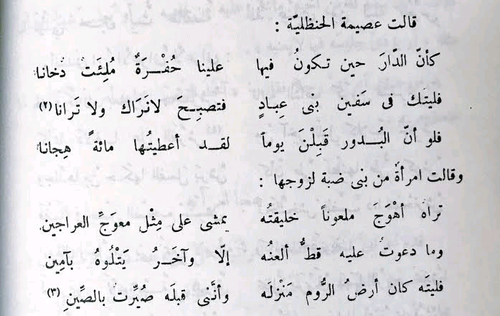 قالت عصيمة الحنظليّة :
كأنّ الدّارَ حين تكونُ فيها علينا حُفْرَةٌ مُلِئَتْ دُخانا
فليتَك فى سَفين بَنى عِبادٍ فتصبِحَ لا نَرَاك ولا تَرانا (٢)
فلو أنّ البُدور قَبِلْنَ يوماً لقد أعطيتُها مائةً هِجانا
وقالت امرأةٌ من بنى ضبة لزوجها :
تراه أهْوَجَ ملعوناً خليقتُه يمشى على مِثْل معوَجِّ العراجين
وما دعوتُ عليه قطُّ ألعنُه إلّا وآخَرُ يَتْلُوهُ بآمِين
فليتَه كان أرضُ الرُّوم مَنْزلَه وأنَّنى قبلَه صُيِّرتُ بالصِّينِ (٣)